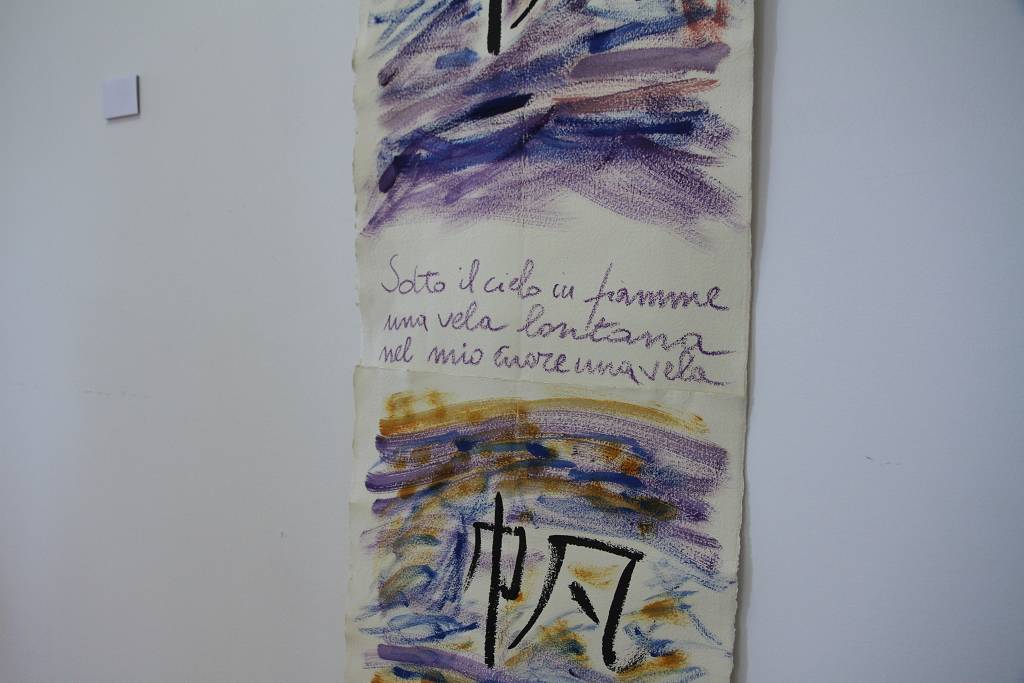 Sotto il cielo in fiamme
una vela lontana
nel mio cuore una vela
帆